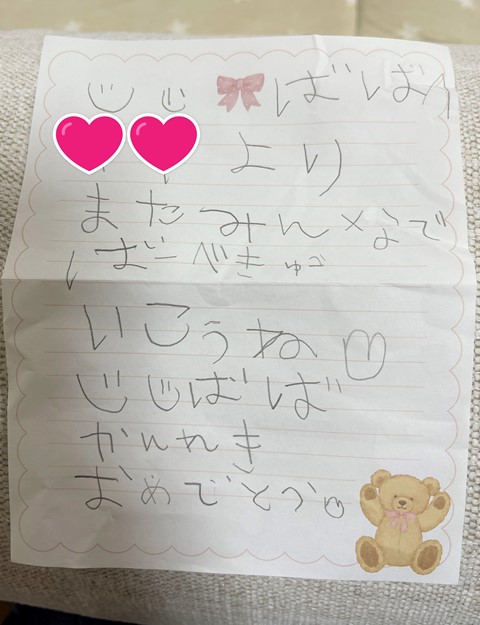 じじ ばばへ
より
またみんなで
ばーべきゅー
いこうね♡
じじばば
かんれき
おめでとう♡